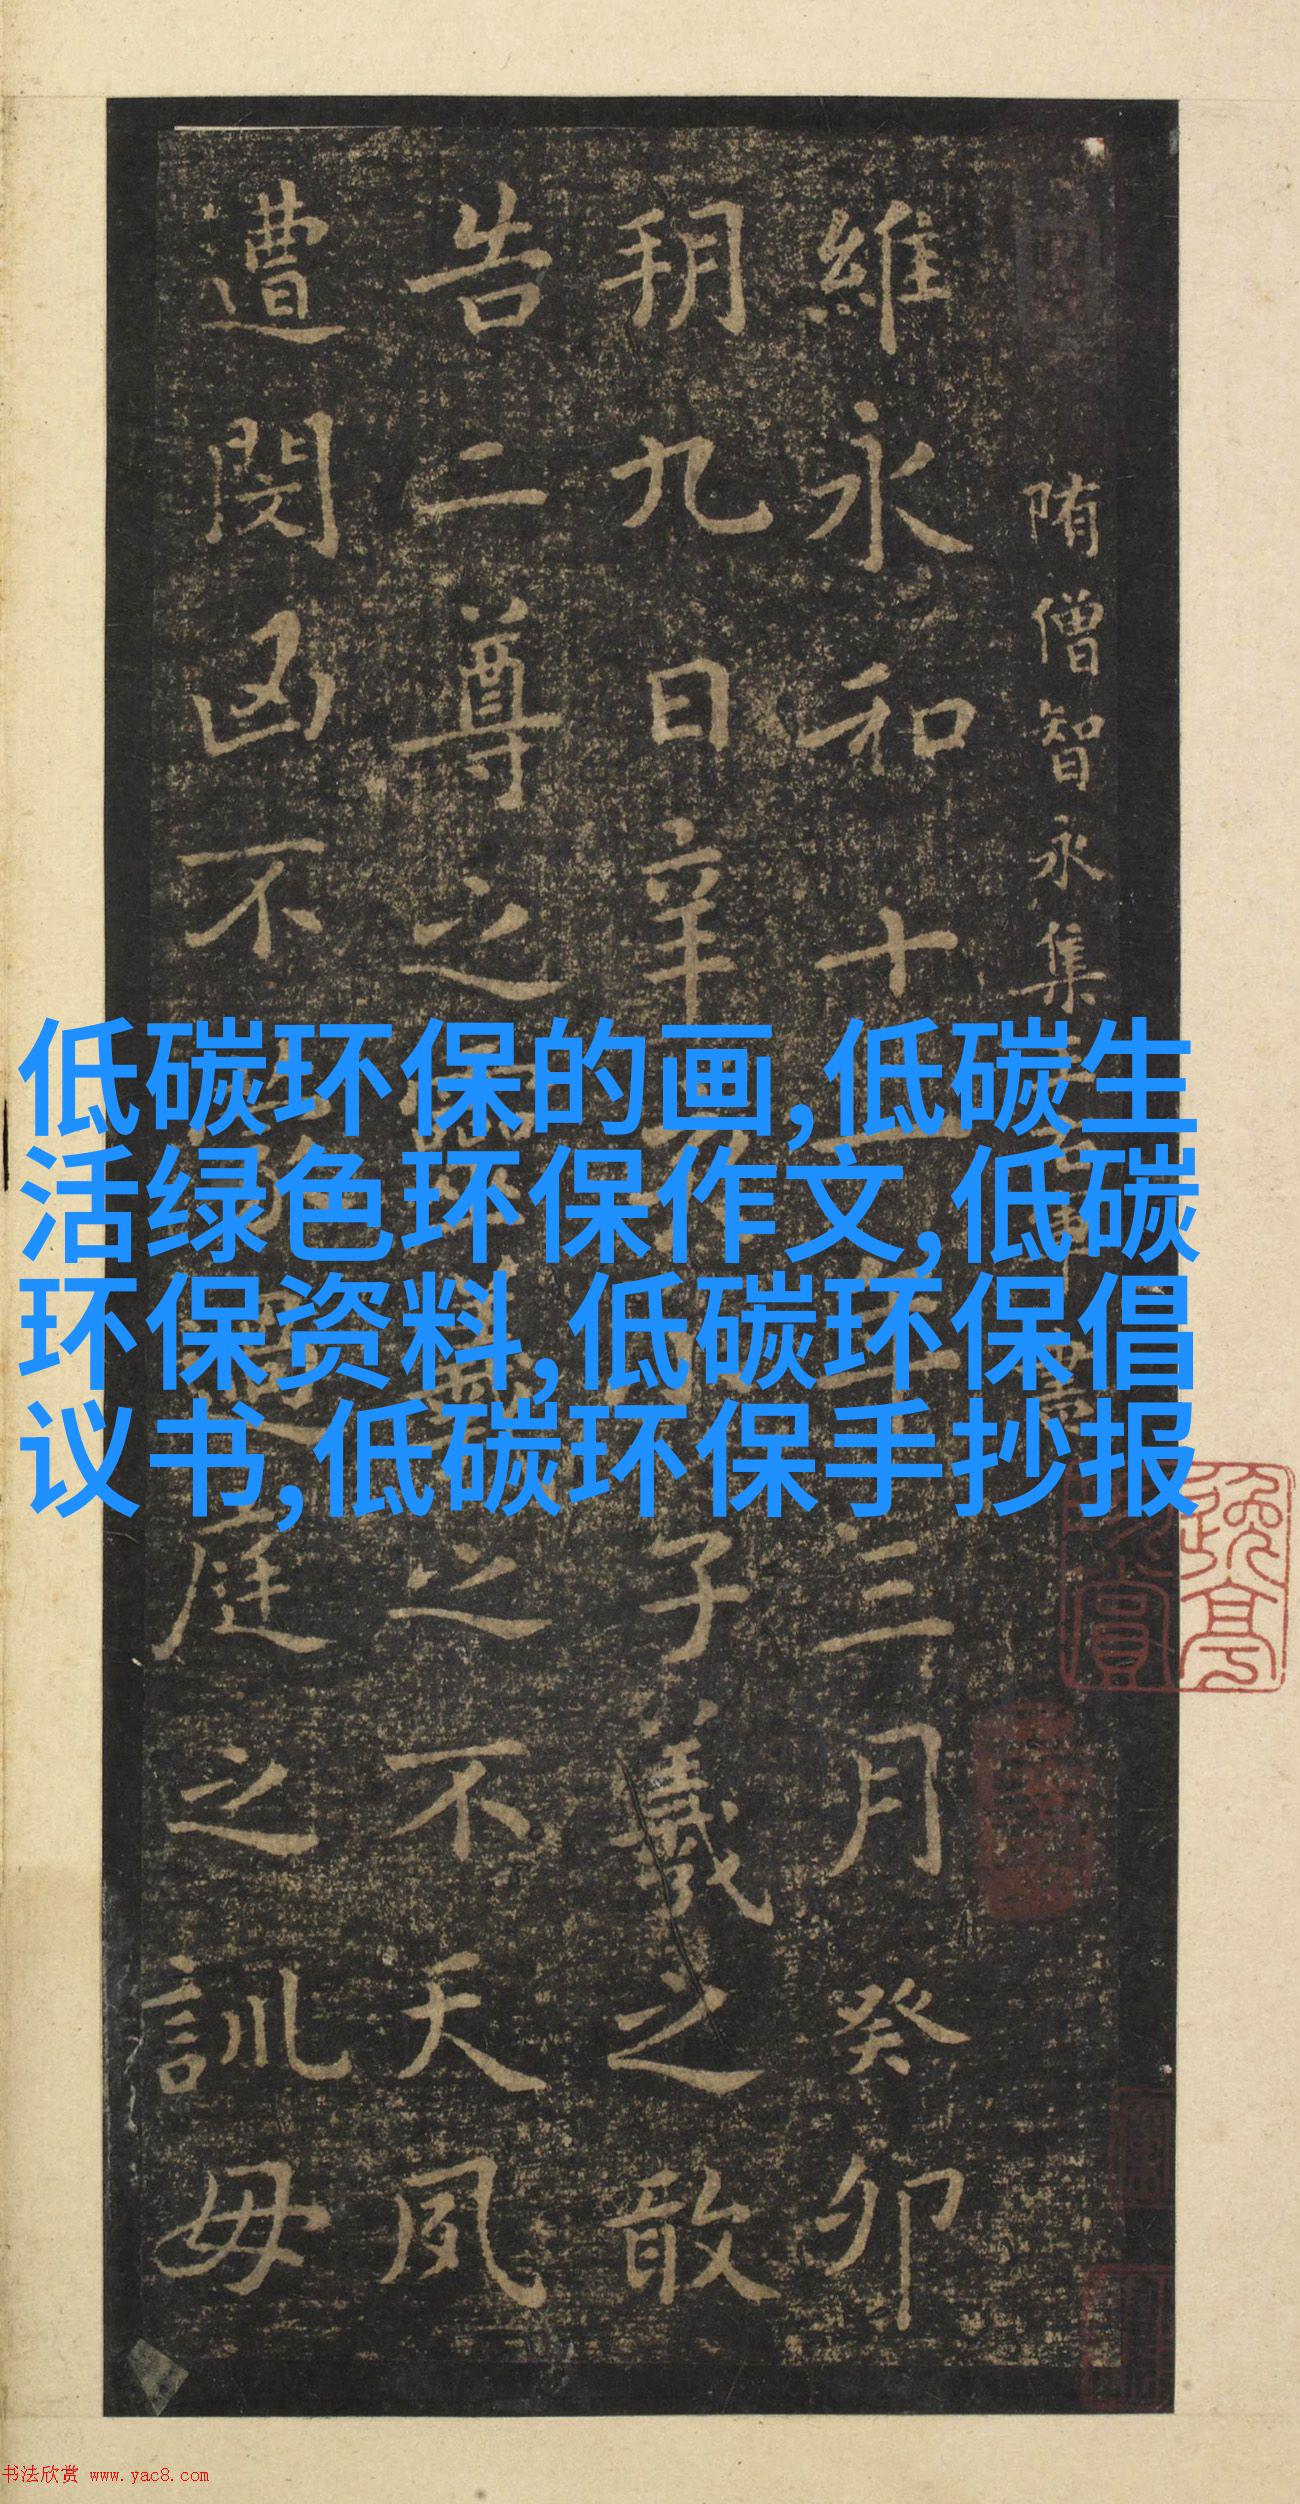 隋僧智永集
維永和十三月癸卯
朔九日辛子羲之敢
告二尊之靈之不天夙
遭閔凶不庭之訓毋
低碳环保的画,低碳生
活绿色环保作文,低碳
环保资料,低碳环保倡
议书,低碳环保手抄报
书法欣赏 www.yac8.com